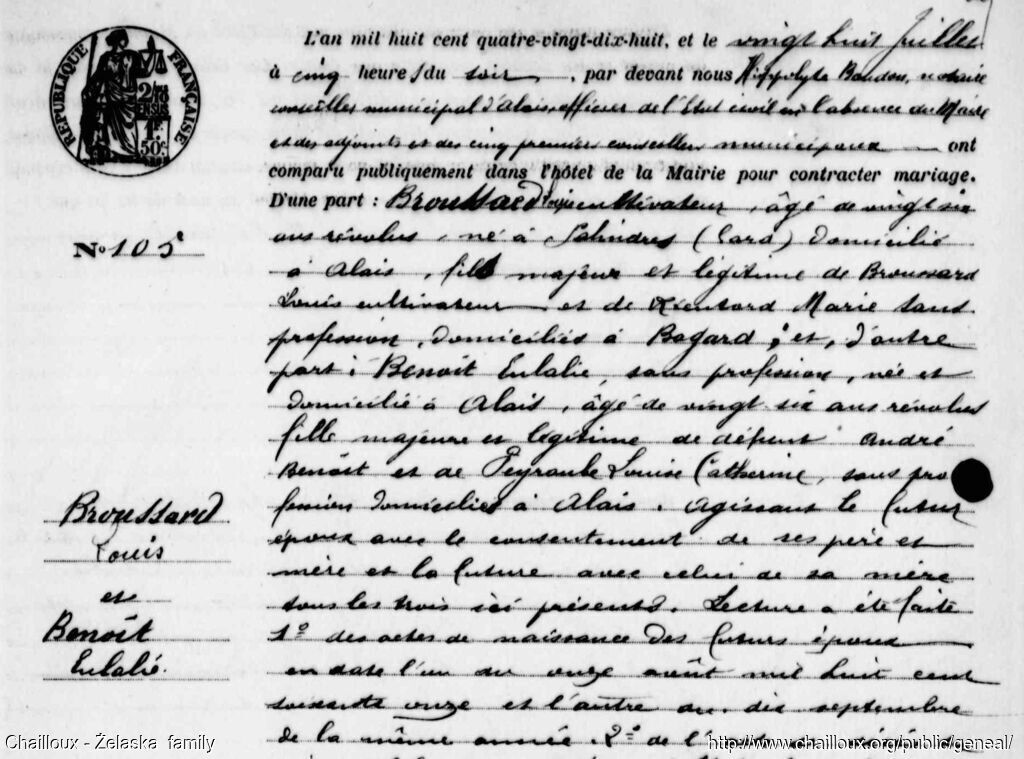 RÉPUBLIQUE FRANÇAISE
2/10
EN SUS
1F
50c
L'an mil huit cent quatre-vingt-dix-huit, et le vingt huit Juillet
à cinq heures du soir, par devant nous Hippolyte Boudon, notaire
conseiller municipal d'Alais, officier de l'Etat civil en l'absence du Maire
et des adjoints et des cinq premiers conseillers municipaux ont
comparu publiquement dans l'hôtel de la Mairie pour contracter mariage.
D'une part : Broussard Louis cultivateur, âgé de vingt six
ans révolus, né à Salindres (Gard) domicilié
à Alais, fils majeur et légitime de Broussard
Louis cultivateur et de Marie sans
profession, domiciliés à Bagard ; et, d'autre
part : Benoît Eulalie, sans profession, née et
domicilié à Alais, âgé de vingt six ans révolus
fille majeure et légitime de défunt André
Benoît et de Peyraube Louise Catherine, sans pro
fession domiciliés à Alais. Agissant le futur
époux avec le consentement de ses père et
mère et la future avec celui de sa mère
tous les trois ici présents. Lecture a été faite
1º des actes de naissance des futurs époux
en date l'un du onze août mil huit cent
soixante onze et l'autre du dix septembre
de la même année. 2º de l'
No 105
Broussard
Louis
et
Benoît
Eulalie.
Chailloux - Żelaska family
http://www.chailloux.org/public/geneal/